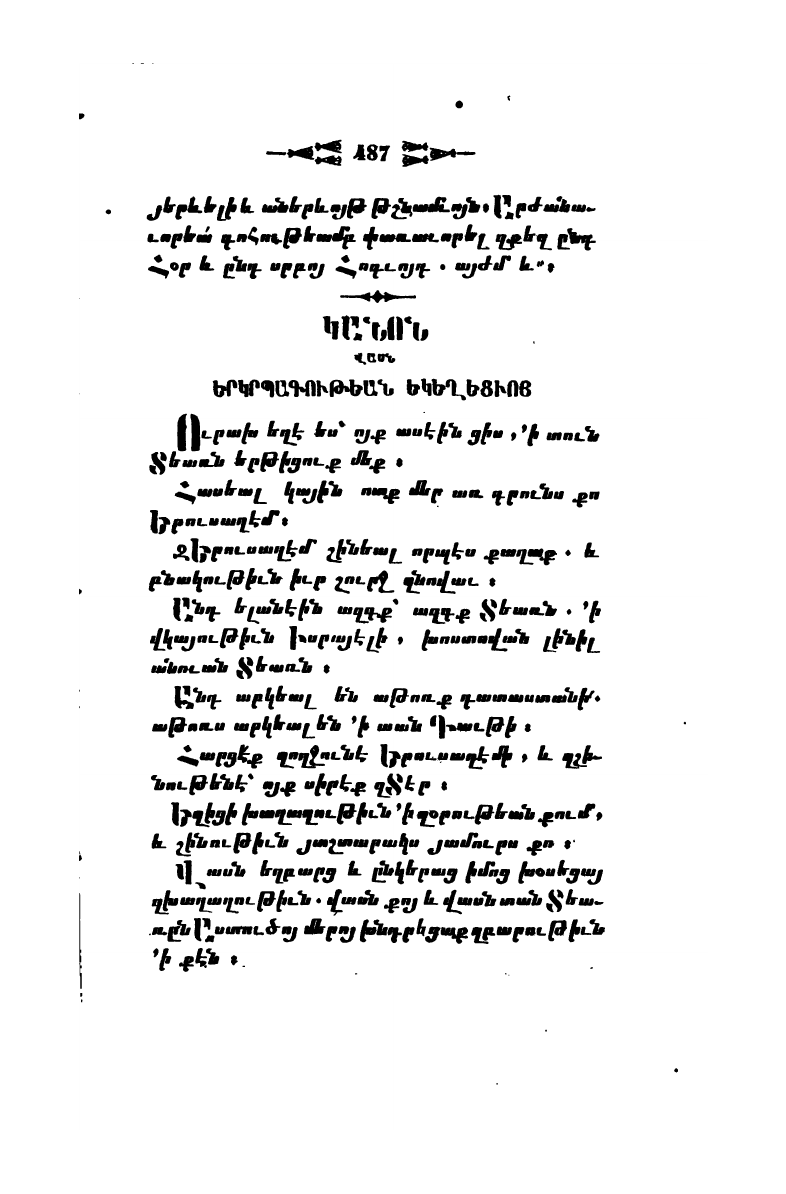 487
յերևելի և աներևոյթ թշնամւոյն. Արժանա-
ւորեա՛ գոհութեամբ փառաւորել զքեզ ընդ
Հօր և ընդ սրբոյ Հոգւոյդ . այժմ և՟ :
ԿԱՆՈՆ
ՎԱՍՆ
ԵՐԿՐՊԱԳՈՒԹԵԱՆ ԵԿԵՂԵՑԻՈՅ
Ուրախ եղէ ես՝ ոյք ասէին ցիս , ՚ի տուն
Տեառն երթիցուք մեք :
Հասեալ կային ոտք մեր առ դրունս քո
Երուսաղէմ :
Զերուսաղէմ շինեալ որպէս քաղաք . և
բնակութիւն իւր շուրջ գնովաւ :
Անդ ելանէին ազգք՝ ազգք Տեառն . ՚ի
վկայութիւն Իսրայէլի , խոստովան լինիլ
անուան Տեառն :
Անդ արկեալ են աթոռք դատաստանի .
աթոռս արկեալ են ՚ի տան Դաւթի :
Հարցէք զողջունէ Երուսաղէմի , և զշի-
նութենէ՝ ոյք սիրէք զՏէր :
Եղիցի խաղաղութիւն ՚ի զօրութեան քում ,
և շինութիւն յաշտարակս յամուրս քո :
Վասն եղբարց և ընկերաց իմոց խօսեցայ
զխաղաղութիւն . վասն քոյ և վասն տան Տեա-
ռըն Աստուծոյ մերոյ խնդրեցաք զբարութիւն
՚ի քէն :